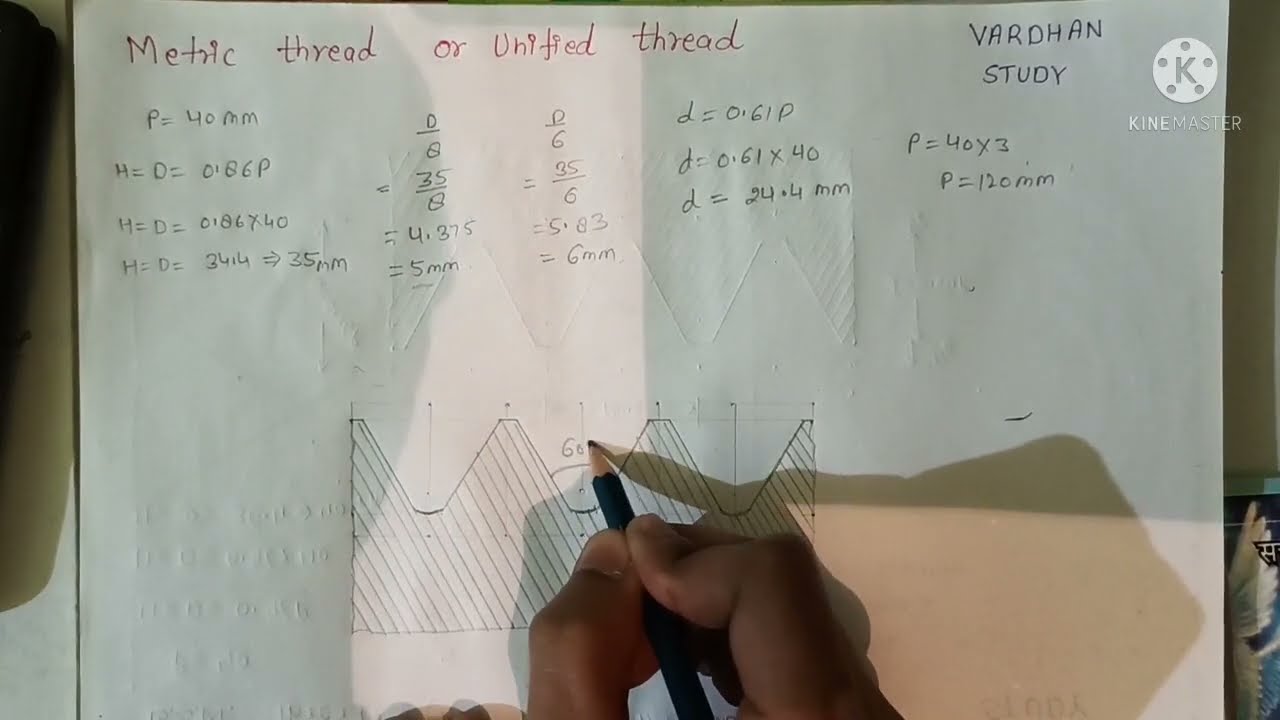 Metric thread or Unified thread
VARDHAN
STUDY
KINEMASTER
P = 40 mm
H = D = 0.86P
H = D = 0.86 X 40
H = D = 34.4 ⇒ 35mm
D/8
= 35/8
= 4.375
= 5mm
D/6
= 35/6
= 5.83
= 6mm
d = 0.61P
d = 0.61 X 40
d = 24.4 mm
P = 40 X 3
P = 120mm
60